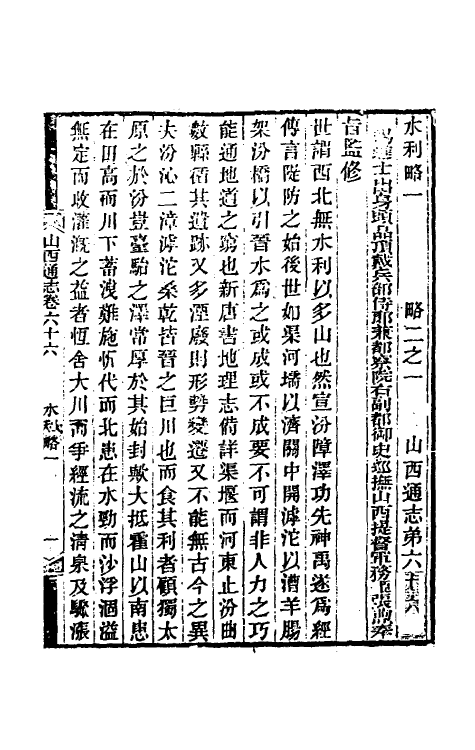 水利略一 略二之一 山西通志第六十六
賜進士出身頭品頂戴兵部侍郎兼都察院右副都御史巡撫山西提督軍務張煦奉
旨監修
世謂西北無水利以多山也然宣汾障澤功先神禹遂為經
傳言隄防之始後世如渠河壖以濟關中開滹沱以漕羊腸
架汾橋以引晉水為之或成或不成要不可謂非人力之巧
能通地道之窮也新唐書地理志備詳渠堰而河東止汾曲
數縣循其遺跡又多湮廢則形勢變遷又不能無古今之異
夫汾沁二漳滹沱桑乾皆晉之巨川也而食其利者顧獨太
原之於汾豈臺駘之澤常厚於其始封歟大抵霍山以南患
在田高而川下蓄洩難施忻代而北患在水勁而沙浮涸溢
無定而收灌溉之益者恆舍大川而爭經流之清泉及驟漲
山西通志卷六十六 水利略一 一